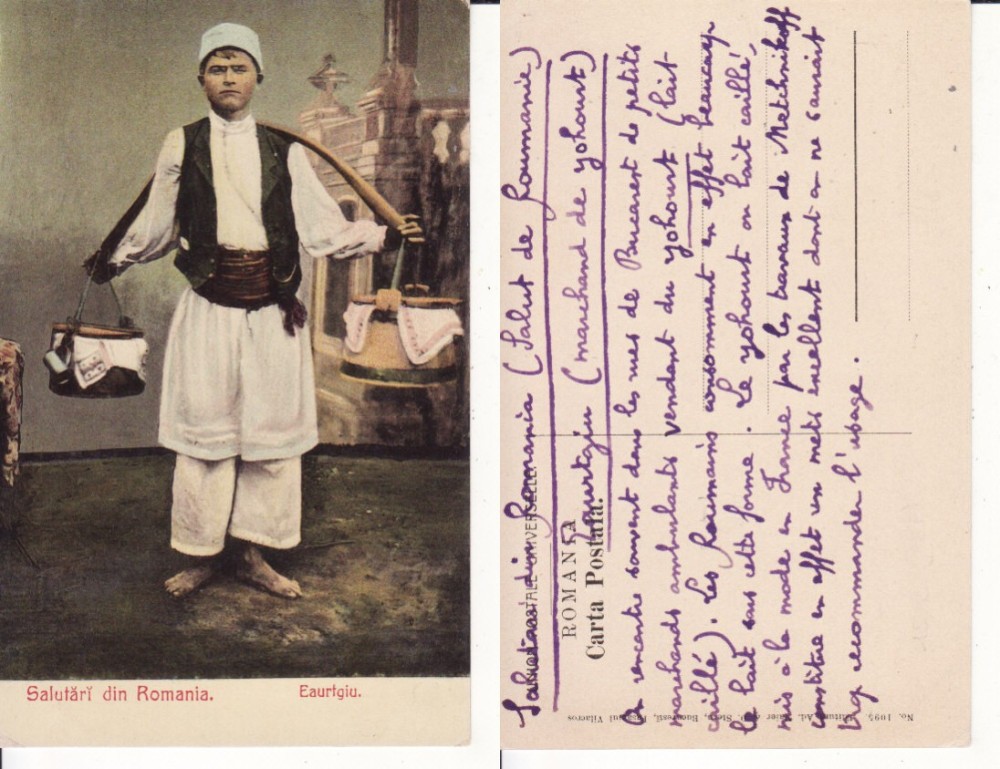 Salutărĭ din Romania.
Eaurtgiu.
Salutari din Romania (Salut de Roumanie)
Eaurtgiu (marchand de yohourt)
On rencontre souvent dans les rues de Bucarest de petits
marchands ambulants vendant du yohourt (lait
caillé). Les Roumains consomment en effet beaucoup
le lait sous cette forme. Le yohourt ou lait caillé,
mis à la mode en France par les travaux de Metchnikoff
constitue en effet un mets excellent dont on ne saurait
trop recommander l'usage.
UNIUNEA POSTALE UNIVERSELLE.
ROMANIA
Carta Postală.
No. 1095. Ad. Maier & D. Stern, Bucuresti, Pasagiul Vilacros